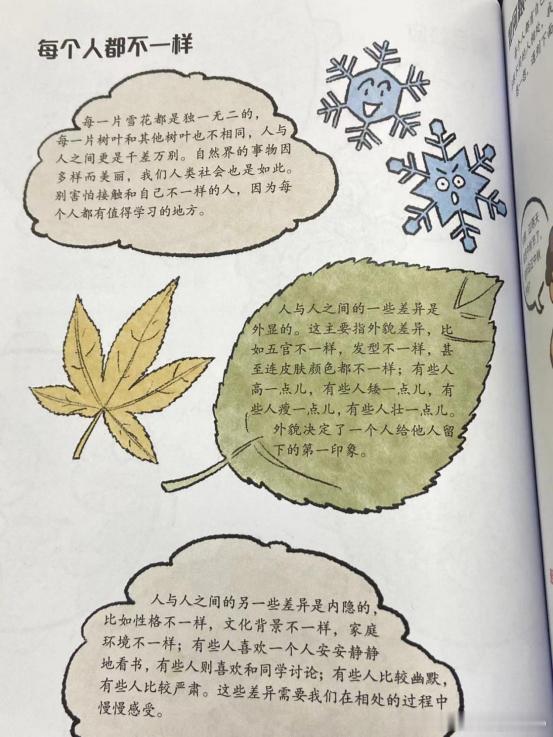 每个人都不一样
每一片雪花都是独一无二的，
每一片树叶和其他树叶也不相同，人与
人之间更是千差万别。自然界的事物因
多样而美丽，我们人类社会也是如此。
别害怕接触和自己不一样的人，因为每
个人都有值得学习的地方。
人与人之间的一些差异是
外显的。这主要指外貌差异，比
如五官不一样，发型不一样，甚
至连皮肤颜色都不一样；有些人
高一点儿，有些人矮一点儿，有
些人瘦一点儿，有些人壮一点儿。
外貌决定了一个人给他人留
下的第一印象。
人与人之间的另一些差异是内隐的，
比如性格不一样，文化背景不一样，家庭
环境不一样；有些人喜欢一个人安安静静
地看书，有些人则喜欢和同学讨论；有些人比较幽默，
有些人比较严肃。这些差异需要我们在相处的过程中
慢慢感受。